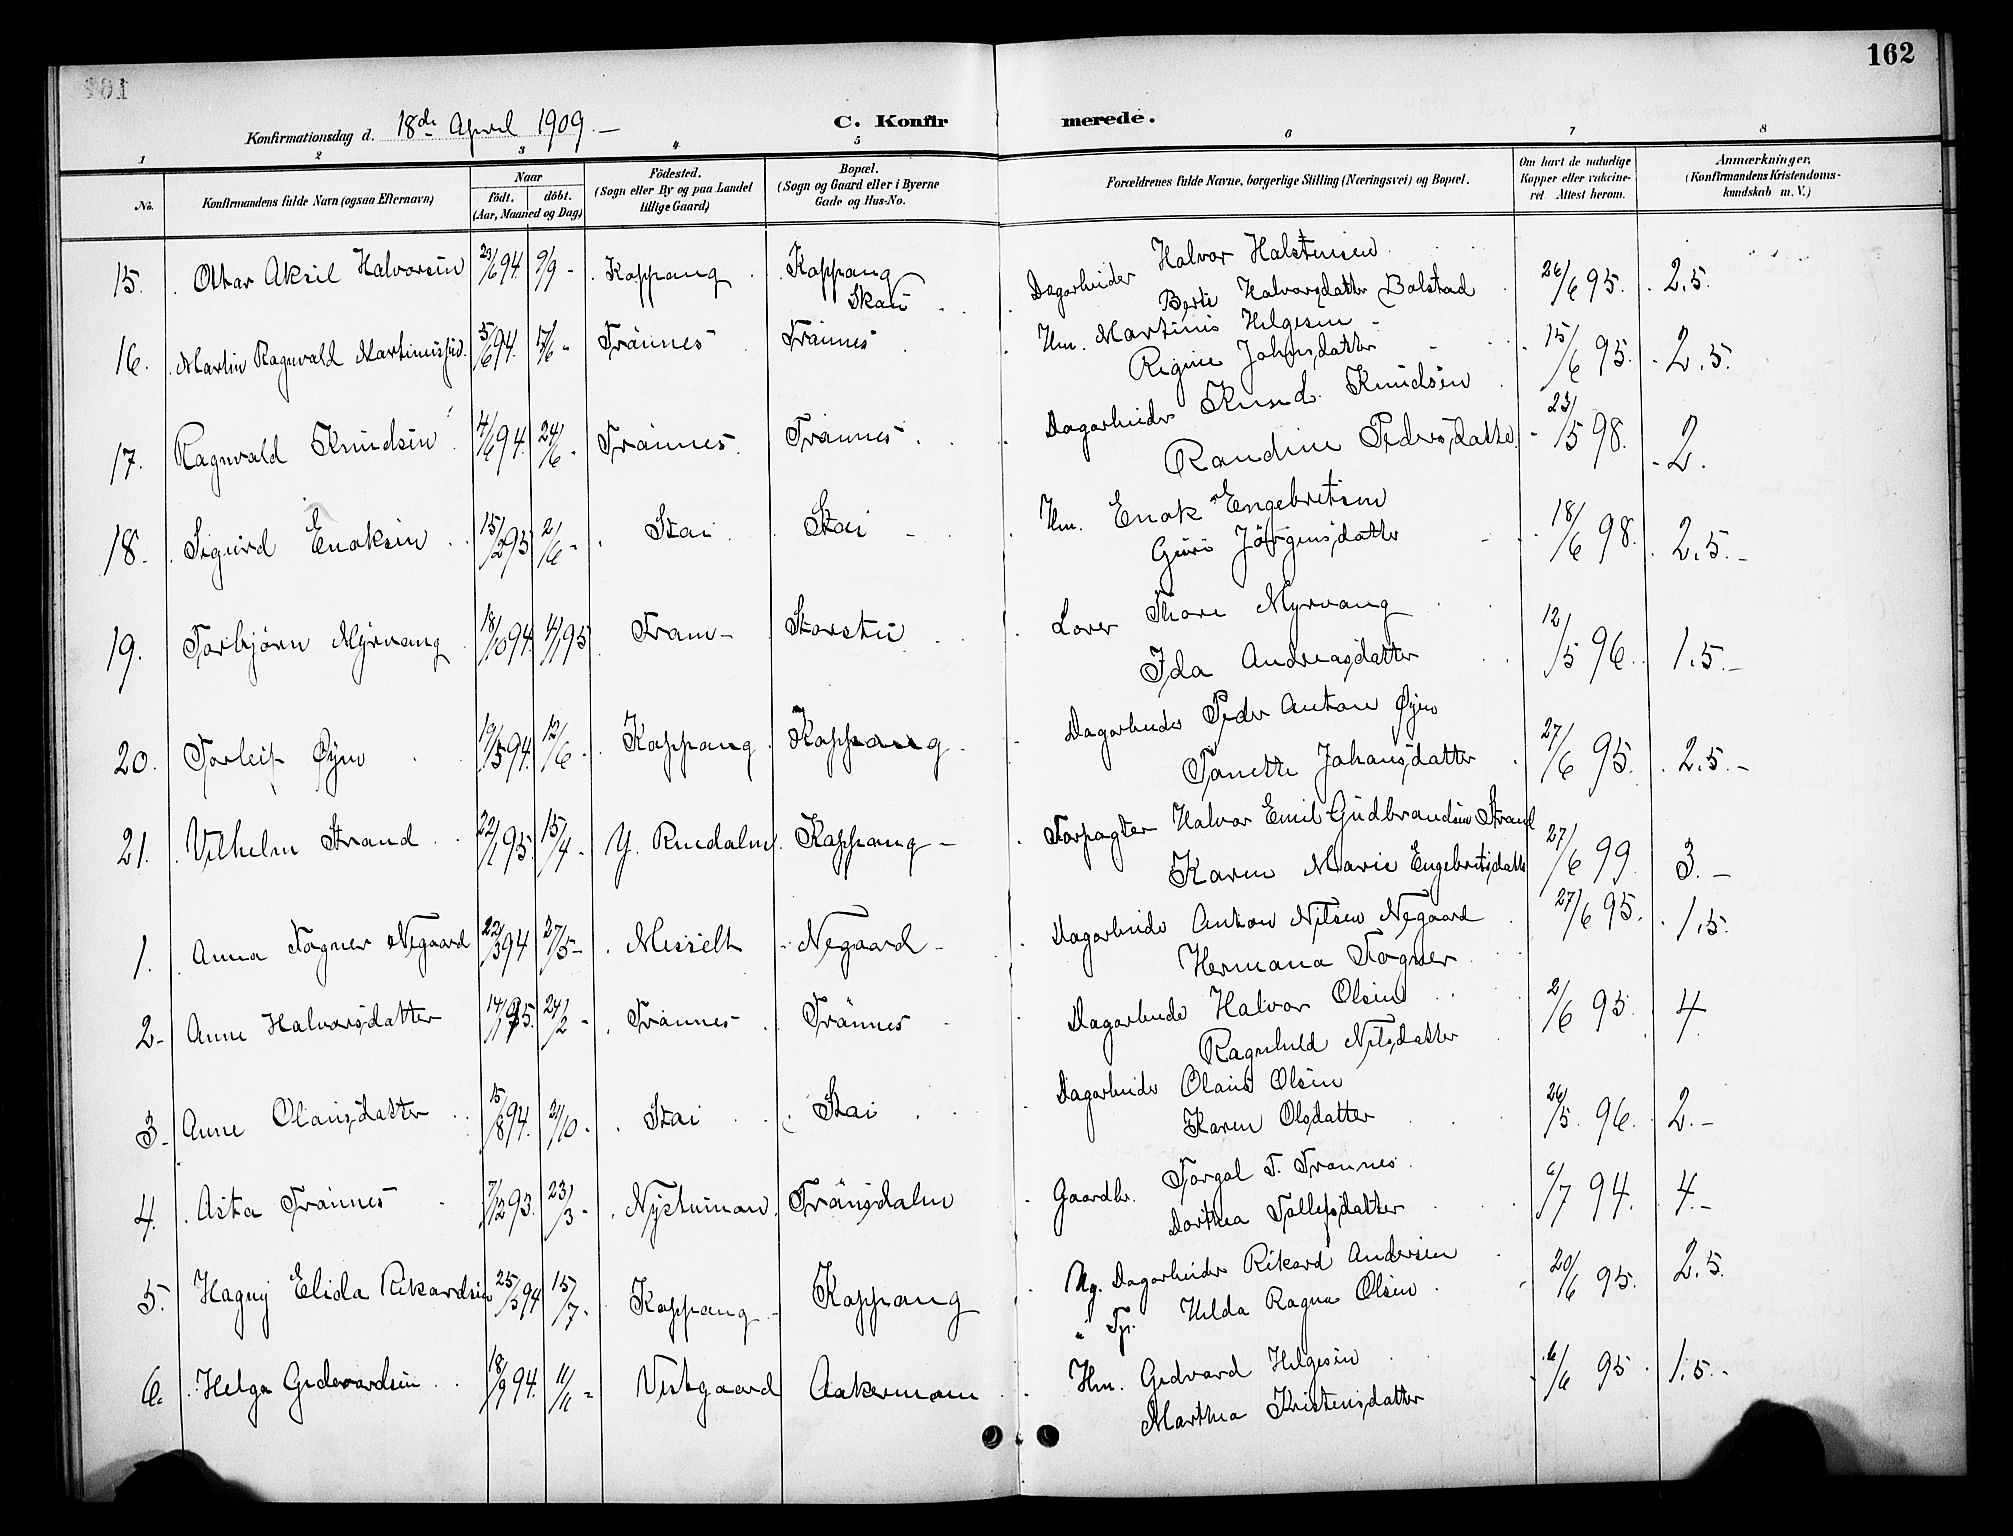 162
Konfirmationsdag d. 18de April 1909.—
C. Konfirmerede.
1 2 3 4 5 6 7 8
No.
Konfirmandens fulde Navn (ogsaa Efternavn)
Naar
født. døbt.
(Aar, Maaned og Dag)
Födested.
(Sogn eller By og paa Landet
tillige Gaard)
Bopæl.
(Sogn og Gaard eller i Byerne
Gade og Hus-No.
Forældrenes fulde Navne, borgerlige Stilling (Næringsvei) og Bopæl.
Om havt de naturlige
Kopper eller vakcine-
ret. Attest herom.
Anmærkninger,
(Konfirmandens Kristendoms-
kundskab m. V.)
15. Ottar Aksel Halvorsen 29/6 94 9/9 - Koppang Koppang Dagarbeider Halvor Halstensen 26/6 95. 2,5.
Skau Berte Halvorsdatter Bolstad
16. Martin Ragnvald Martiniussen 5/6 94. 17/6 - Trønnes Trønnes Hm. Martinus Helgesen 15/6 95. 2,5.
Regine Johnsdatter
17. Ragnvald Knudsen 4/6 94. 24/6 - Trønnes Trønnes Dagarbeider Knud Knudsen 23/5 98. 2.
Randine Pedersdatter
18. Sigurd Enoksen 15/2 95 2/6 - Stai Stai - Hm. Enok Engebretsen 18/6 98. 2,5.-
Guri Jørgensdatter
19. Torbjørn Myrvang 18/10 94. 4/1 95 Tram- Storstu Lover Thore Myrvang 12/5 96. 1,5.-
Ida Andreasdatter
20. Torleif Øyen 19/3 94. 12/6 - Koppang Koppang Dagarbeider Peder Anton Øyen 27/6 95. 2,5.-
Tanette Johansdatter
21. Vilhelm Strand 22/1 95. 15/4 - Y. Rendalen Koppang - Forpagter Halvor Emil Gudbrandsen Strand 27/6 99 3.-
Karen Marie Engebretsdatter
1. Anna Fogner Negaard 22/3 94 27/5 - Messelt Negaard - Dagarbeider Anton Nilsen Negaard 27/6 95. 1,5.
Hermana Fogner
2.- Anne Halvorsdatter 14/1 95. 24/2 - Trønnes Trønnes Dagarbeider Halvor Olsen 2/6 95. 4.
Ragnhild Nilsdatter
3.- Anne Olausdatter 15/8 94. 21/10 - Stai Stai Dagarbeider Olaus Olsen 26/5 96. 2.-
Karen Olsdatter
4. Asta Trønnes 7/12 93. 23/3 - Nystumoen Trønsdalen Gaardbr. Torgal T. Trønnes 6/7 94. 4.-
Dorthea Tollefsdatter
5. Hagny Elida Rikardsen 25/3 94 15/7 - Koppang - Koppang Ug. Dagarbeider Rikard Andersen 20/6 95. 2,5.
" Tp. Hilda Ragna Olsen
6. Helga Gedevardsen 18/9 94. 11/11 - Vestgaard Aakermoen Hm. Gedvard Helgesen 6/6 95 1.5.-
Marthea Kristensdatter